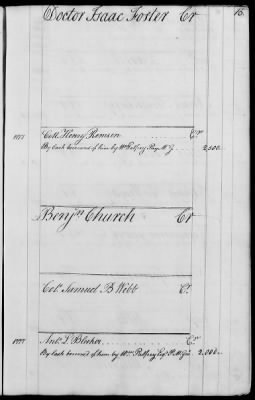 Doctor Isaac Foster Cr 16.
1777 Coll. Henry Remsen Cr
By Cash borrowed of him by Wm Palfrey Pay M. G. 2,500
Benjn Church Cr
Colo. Samuel B Webb Cr
1777 Anty. L Bleeker Cr
By Cash borrowed of him by Wm Palfrey Esqr P.M. Gl. 2,000